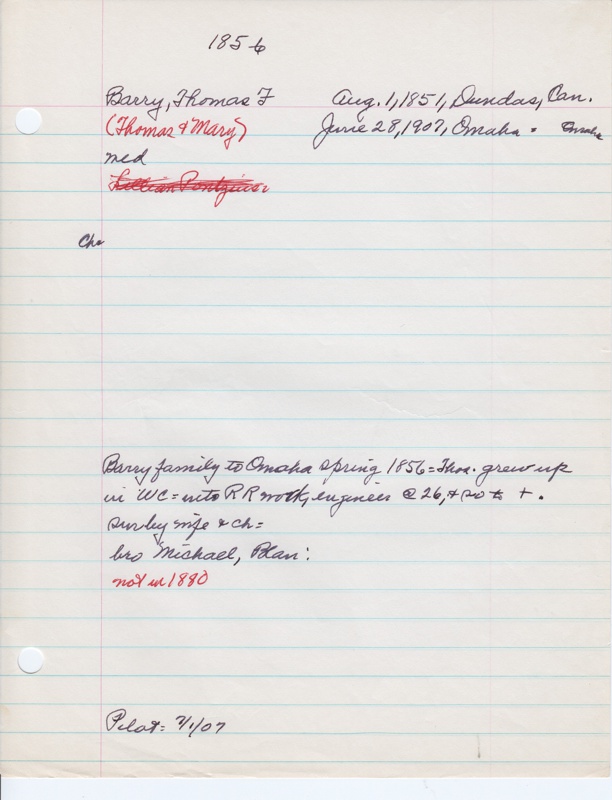 1856
Barry, Thomas F Aug. 1, 1851, Dundas, Can.
(Thomas & Mary) June 28, 1907, Omaha = Omaha
med
Lillian Pontzius
Ch=
Barry family to Omaha spring 1856 = Thos. grew up
in WC = into RR work, engineer @ 26, & so to +.
sur by wife & ch=
bro Michael, Blair:
not in 1880
Pilot: 7/1/07